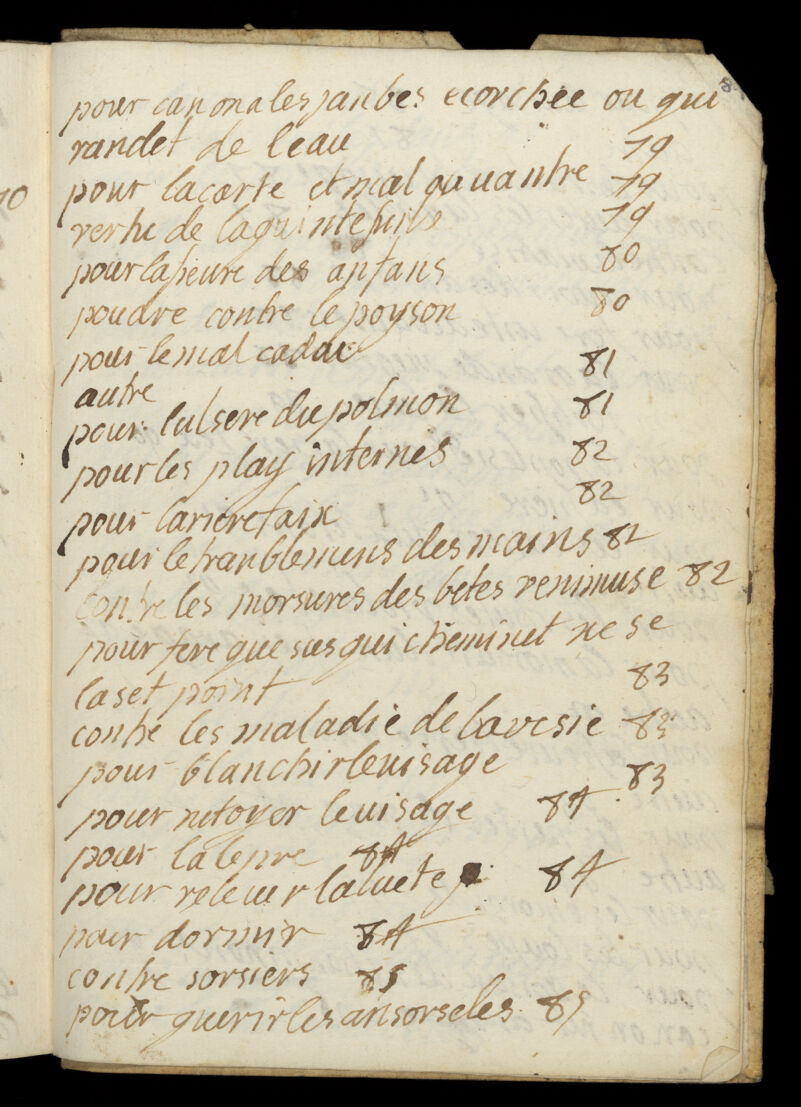 pour can on a les janbes ecorchée ou qui
randet de l'eau 79
pour la et mal qu'a vantre 79
vertu de la quintefuis 79
pour la fieure des anfans 80
poudre contre le poyson 80
pour le mal caduc
autre 81
pour lulsere du polmon 81
pour les play internes 82
pour larierefaix 82
pour le tranblemens des mains 82
contre les morsures des betes venimuse 82
pour fere que sus qui cheminet ne se
laset point 83
contre les maladie de la vesie 83
pour blanchir le uisage 83
pour netoyer le uisage 84
pour la lepre 84
pour releuer la luete 84
pour dormir 84
contre sorsiers 85
pour guerir les ansorseles 85